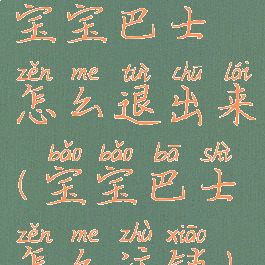 宝宝巴士
zěn me tuì chū lái
怎么退出来
bǎo bǎo bā shì
(宝宝巴士
zěn me zhù xiāo
怎么注销)